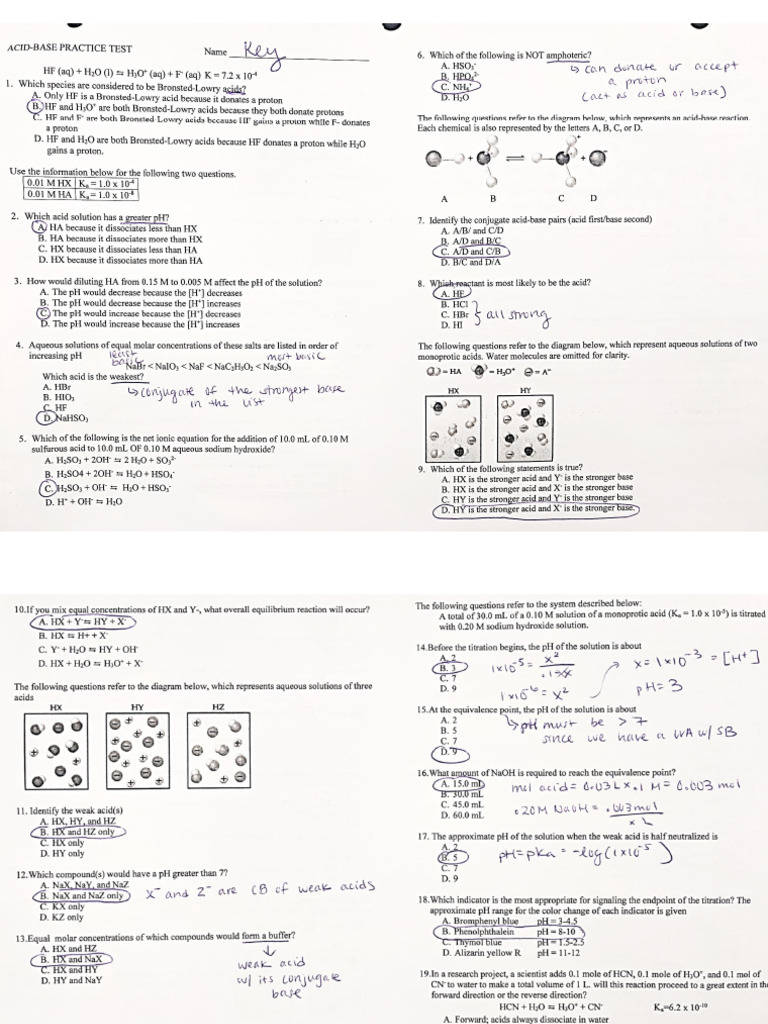 ACID-BASE PRACTICE TEST
Name Key
HF (aq) + H₂O (l) ⇌ H₃O⁺ (aq) + F⁻ (aq) K = 7.2 x 10⁻⁴
1. Which species are considered to be Bronsted-Lowry acids?
A. Only HF is a Bronsted-Lowry acid because it donates a proton
B. HF and H₃O⁺ are both Bronsted-Lowry acids because they both donate protons
C. HF and F⁻ are both Bronsted-Lowry acids because HF gains a proton while F- donates
a proton
D. HF and H₂O are both Bronsted-Lowry acids because HF donates a proton while H₂O
gains a proton.
Use the information below for the following two questions.
0.01 M HX Kₐ = 1.0 x 10⁻⁴
0.01 M HA Kₐ = 1.0 x 10⁻⁸
2. Which acid solution has a greater pH?
A. HA because it dissociates less than HX
B. HA because it dissociates more than HX
C. HX because it dissociates less than HA
D. HX because it dissociates more than HA
3. How would diluting HA from 0.15 M to 0.005 M affect the pH of the solution?
A. The pH would decrease because the [H⁺] decreases
B. The pH would decrease because the [H⁺] increases
C. The pH would increase because the [H⁺] decreases
D. The pH would increase because the [H⁺] increases
4. Aqueous solutions of equal molar concentrations of these salts are listed in order of
increasing pH
least
basic
most basic
NaBr < NaIO₃ < NaF < NaC₂H₃O₂ < Na₂SO₃
Which acid is the weakest?
A. HBr
B. HIO₃
C. HF
D. NaHSO₃
↳ conjugate of the strongest base
in the list
5. Which of the following is the net ionic equation for the addition of 10.0 mL of 0.10 M
sulfurous acid to 10.0 mL OF 0.10 M aqueous sodium hydroxide?
A. H₂SO₃ + 2OH⁻ ⇌ 2 H₂O + SO₃²⁻
B. H₂SO4 + 2OH⁻ ⇌ H₂O + HSO₄⁻
C. H₂SO₃ + OH⁻ ⇌ H₂O + HSO₃⁻
D. H⁺ + OH⁻ ⇌ H₂O
6. Which of the following is NOT amphoteric?
A. HSO₃⁻
B. HPO₄²⁻
C. NH₄⁺
D. H₂O
↳ can donate or accept
a proton
(act as acid or base)
The following questions refer to the diagram below, which represents an acid-base reaction.
Each chemical is also represented by the letters A, B, C, or D.
+ ⇌ +
A B C D
7. Identify the conjugate acid-base pairs (acid first/base second)
A. A/B/ and C/D
B. A/D and B/C
C. A/D and C/B
D. B/C and D/A
8. Which reactant is most likely to be the acid?
A. HF
B. HCl
C. HBr
D. HI
} all strong
The following questions refer to the diagram below, which represent aqueous solutions of two
monoprotic acids. Water molecules are omitted for clarity.
= HA = H₃O⁺ = A⁻
HX HY
9. Which of the following statements is true?
A. HX is the stronger acid and Y⁻ is the stronger base
B. HX is the stronger acid and X⁻ is the stronger base
C. HY is the stronger acid and Y⁻ is the stronger base
D. HY is the stronger acid and X⁻ is the stronger base.
10.If you mix equal concentrations of HX and Y-, what overall equilibrium reaction will occur?
A. HX + Y⁻⇌ HY + X⁻
B. HX ⇌ H+ + X⁻
C. Y⁻ + H₂O ⇌ HY + OH⁻
D. HX + H₂O ⇌ H₃O⁺ + X⁻
The following questions refer to the diagram below, which represents aqueous solutions of three
acids
HX HY HZ
11. Identify the weak acid(s)
A. HX, HY, and HZ
B. HX and HZ only
C. HX only
D. HY only
12.Which compound(s) would have a pH greater than 7?
A. NaX, NaY, and NaZ
B. NaX and NaZ only
C. KX only
D. KZ only
X⁻ and Z⁻ are CB of weak acids
13.Equal molar concentrations of which compounds would form a buffer?
A. HX and HZ
B. HX and NaX
C. HX and HY
D. HY and NaY
↓
weak acid
w/ its conjugate
base
The following questions refer to the system described below:
A total of 30.0 mL of a 0.10 M solution of a monoprotic acid (Kₐ = 1.0 x 10⁻⁵) is titrated
with 0.20 M sodium hydroxide solution.
14.Before the titration begins, the pH of the solution is about
A. 2
B. 3
C. 7
D. 9
1x10⁻⁵ = x² / .1-x
1x10⁻⁶ = x²
x = 1x10⁻³ = [H⁺]
pH = 3
15.At the equivalence point, the pH of the solution is about
A. 2
B. 5
C. 7
D. 9
↳ pH must be > 7
since we have a WA w/ SB
16.What amount of NaOH is required to reach the equivalence point?
A. 15.0 mL
B. 30.0 mL
C. 45.0 mL
D. 60.0 mL
mol acid = 0.03L x .1 M = 0.003 mol
.20M NaOH = .003mol / x L
17. The approximate pH of the solution when the weak acid is half neutralized is
A. 2
B. 5
C. 7
D. 9
pH = pKa = -log(1x10⁻⁵)
18.Which indicator is the most appropriate for signaling the endpoint of the titration? The
approximate pH range for the color change of each indicator is given
A. Bromphenyl blue pH = 3-4.5
B. Phenolphthalein pH = 8-10
C. Thymol blue pH = 1.5-2.5
D. Alizarin yellow R pH = 11-12
19.In a research project, a scientist adds 0.1 mole of HCN, 0.1 mole of H₃O⁺, and 0.1 mol of
CN⁻ to water to make a total volume of 1 L. will this reaction proceed to a great extent in the
forward direction or the reverse direction?
HCN + H₂O ⇌ H₃O⁺ + CN⁻ Kₐ=6.2 x 10⁻¹⁰
A. Forward; acids always dissociate in water